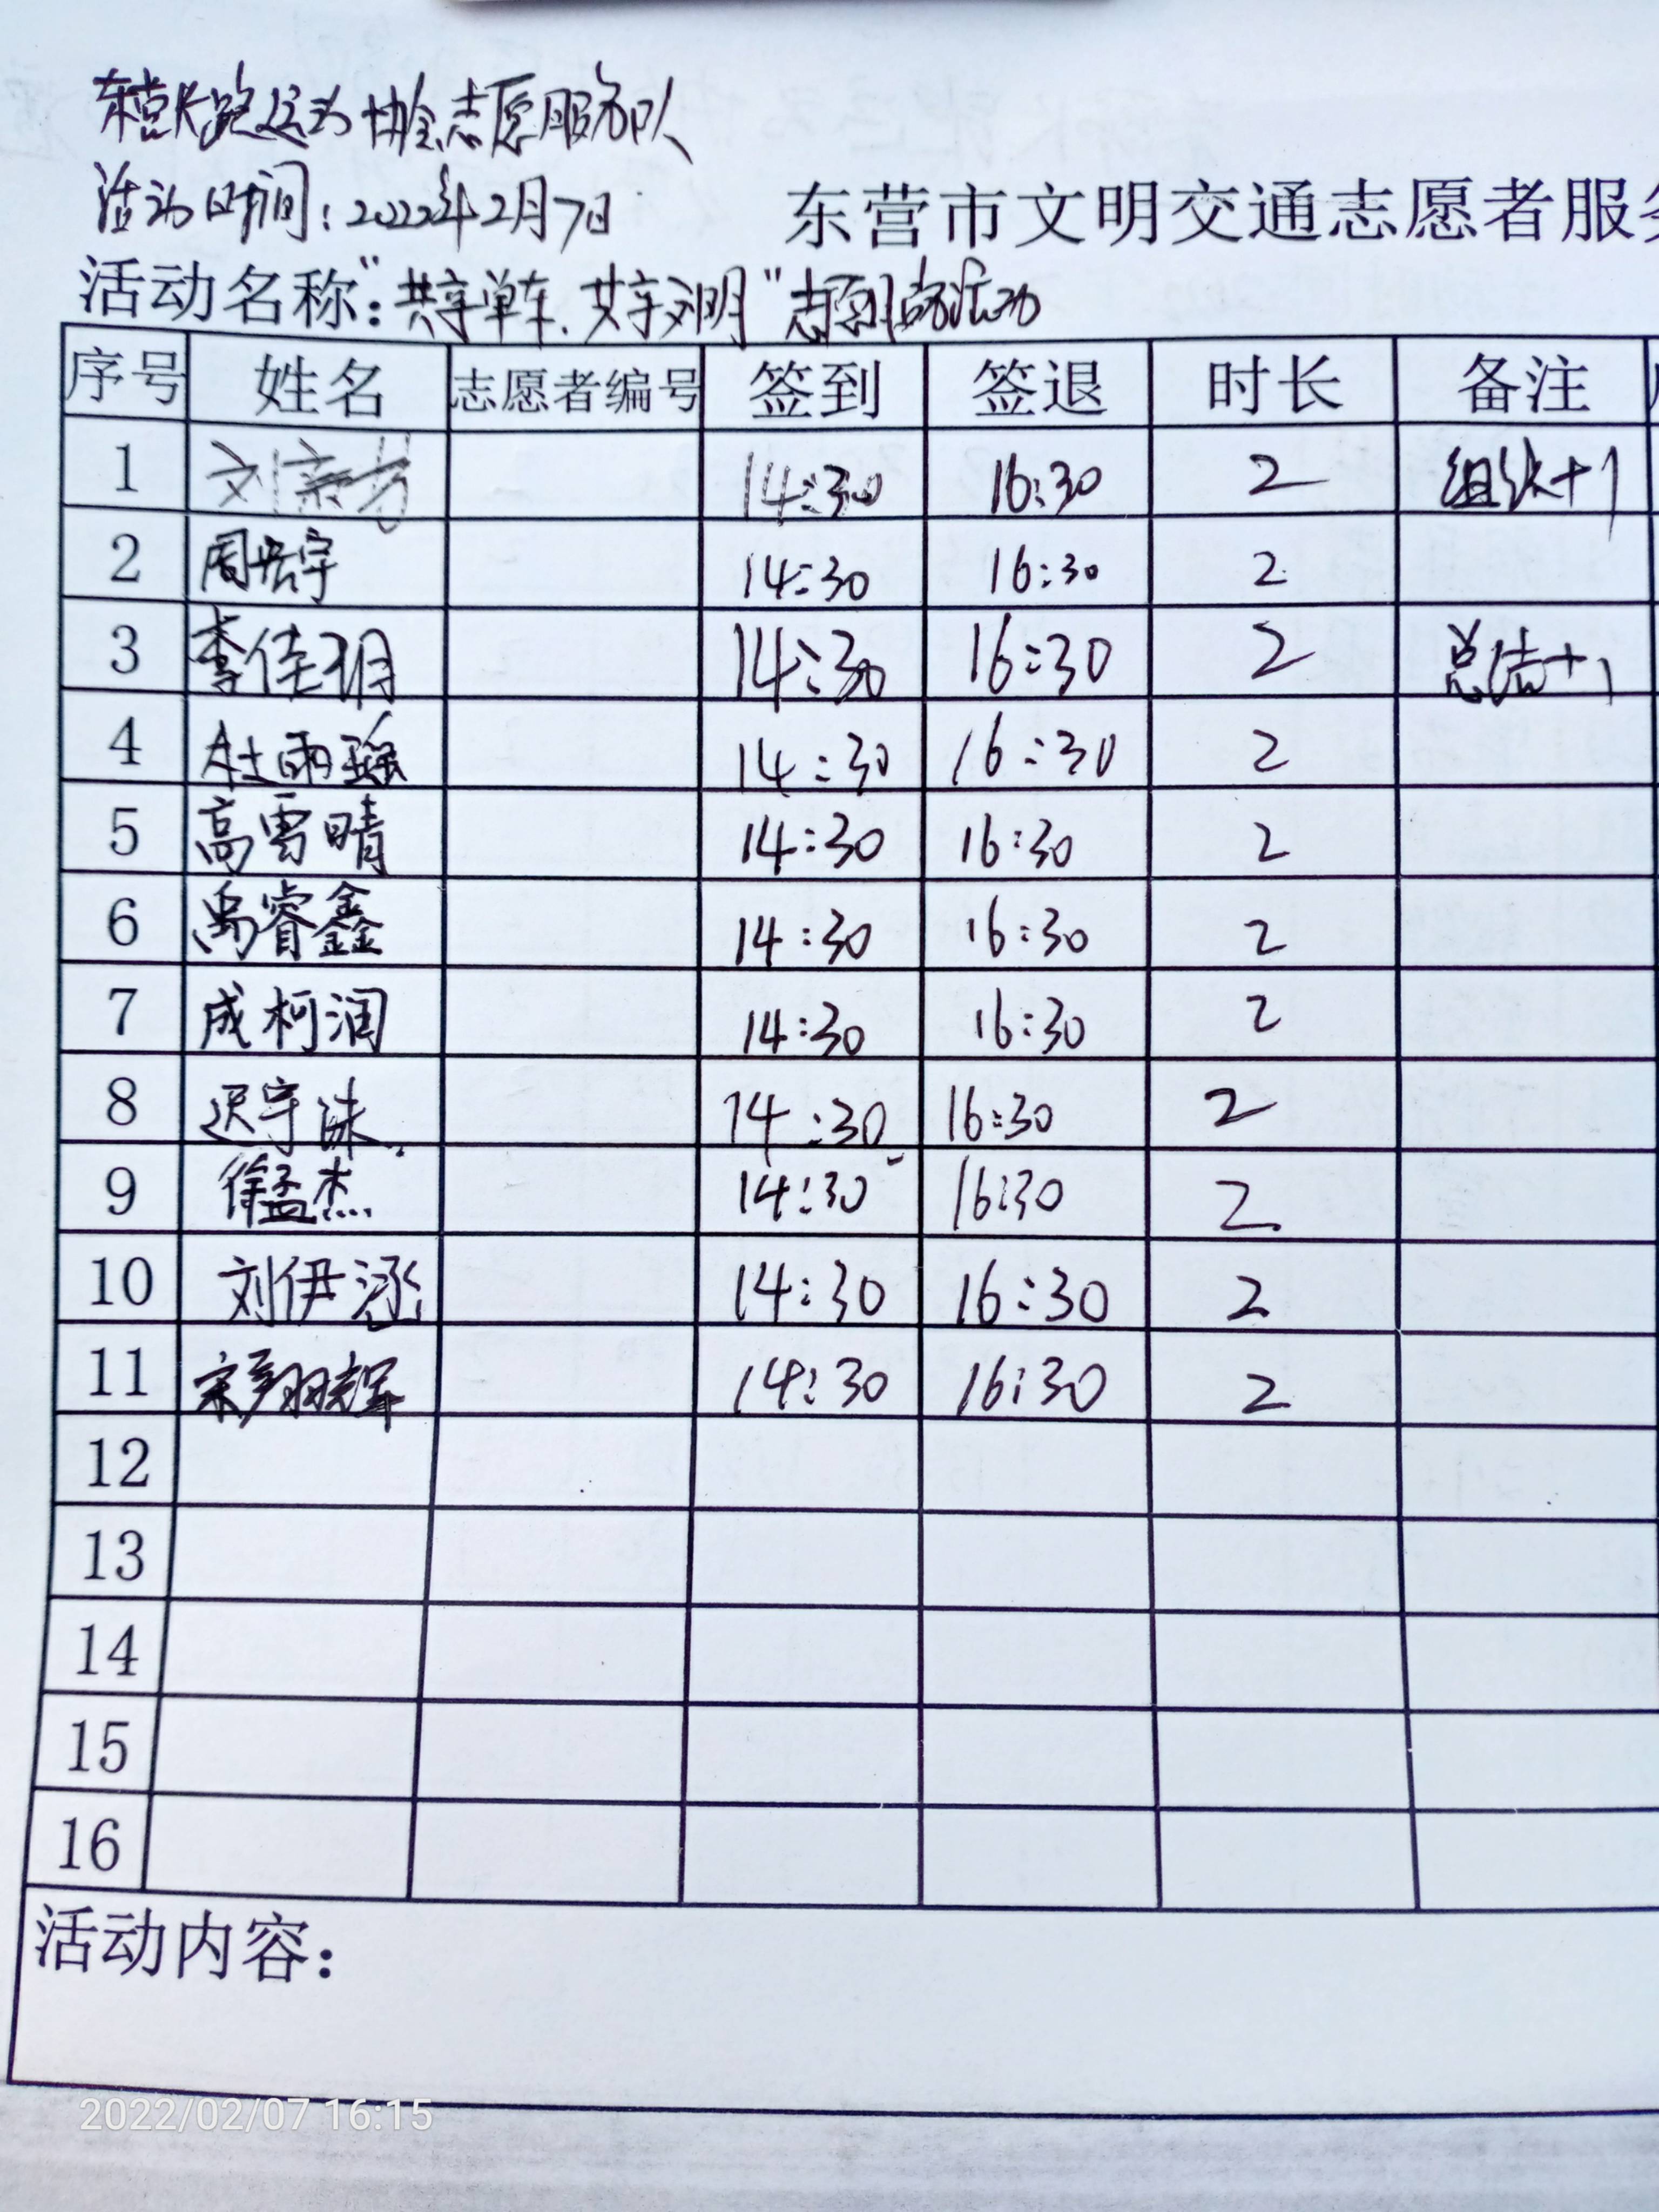 东营长跑运动协会志愿服务队
活动时间：2022年2月7日
东营市文明交通志愿者服务
活动名称：“共享单车、共享文明”志愿服务活动
序号 姓名 志愿者编号 签到 签退 时长 备注
1 刘宗芳 14:30 16:30 2 组织+1
2 周浩宇 14:30 16:30 2
3 李佳玥 14:30 16:30 2 总结+1
4 杜雨瑶 14:30 16:30 2
5 高雪晴 14:30 16:30 2
6 禹睿鑫 14:30 16:30 2
7 成柯润 14:30 16:30 2
8 迟宇洙 14:30 16:30 2
9 徐孟杰 14:30 16:30 2
10 刘伊涵 14:30 16:30 2
11 宋翔辉 14:30 16:30 2
12
13
14
15
16
活动内容：
2022/02/07 16:15